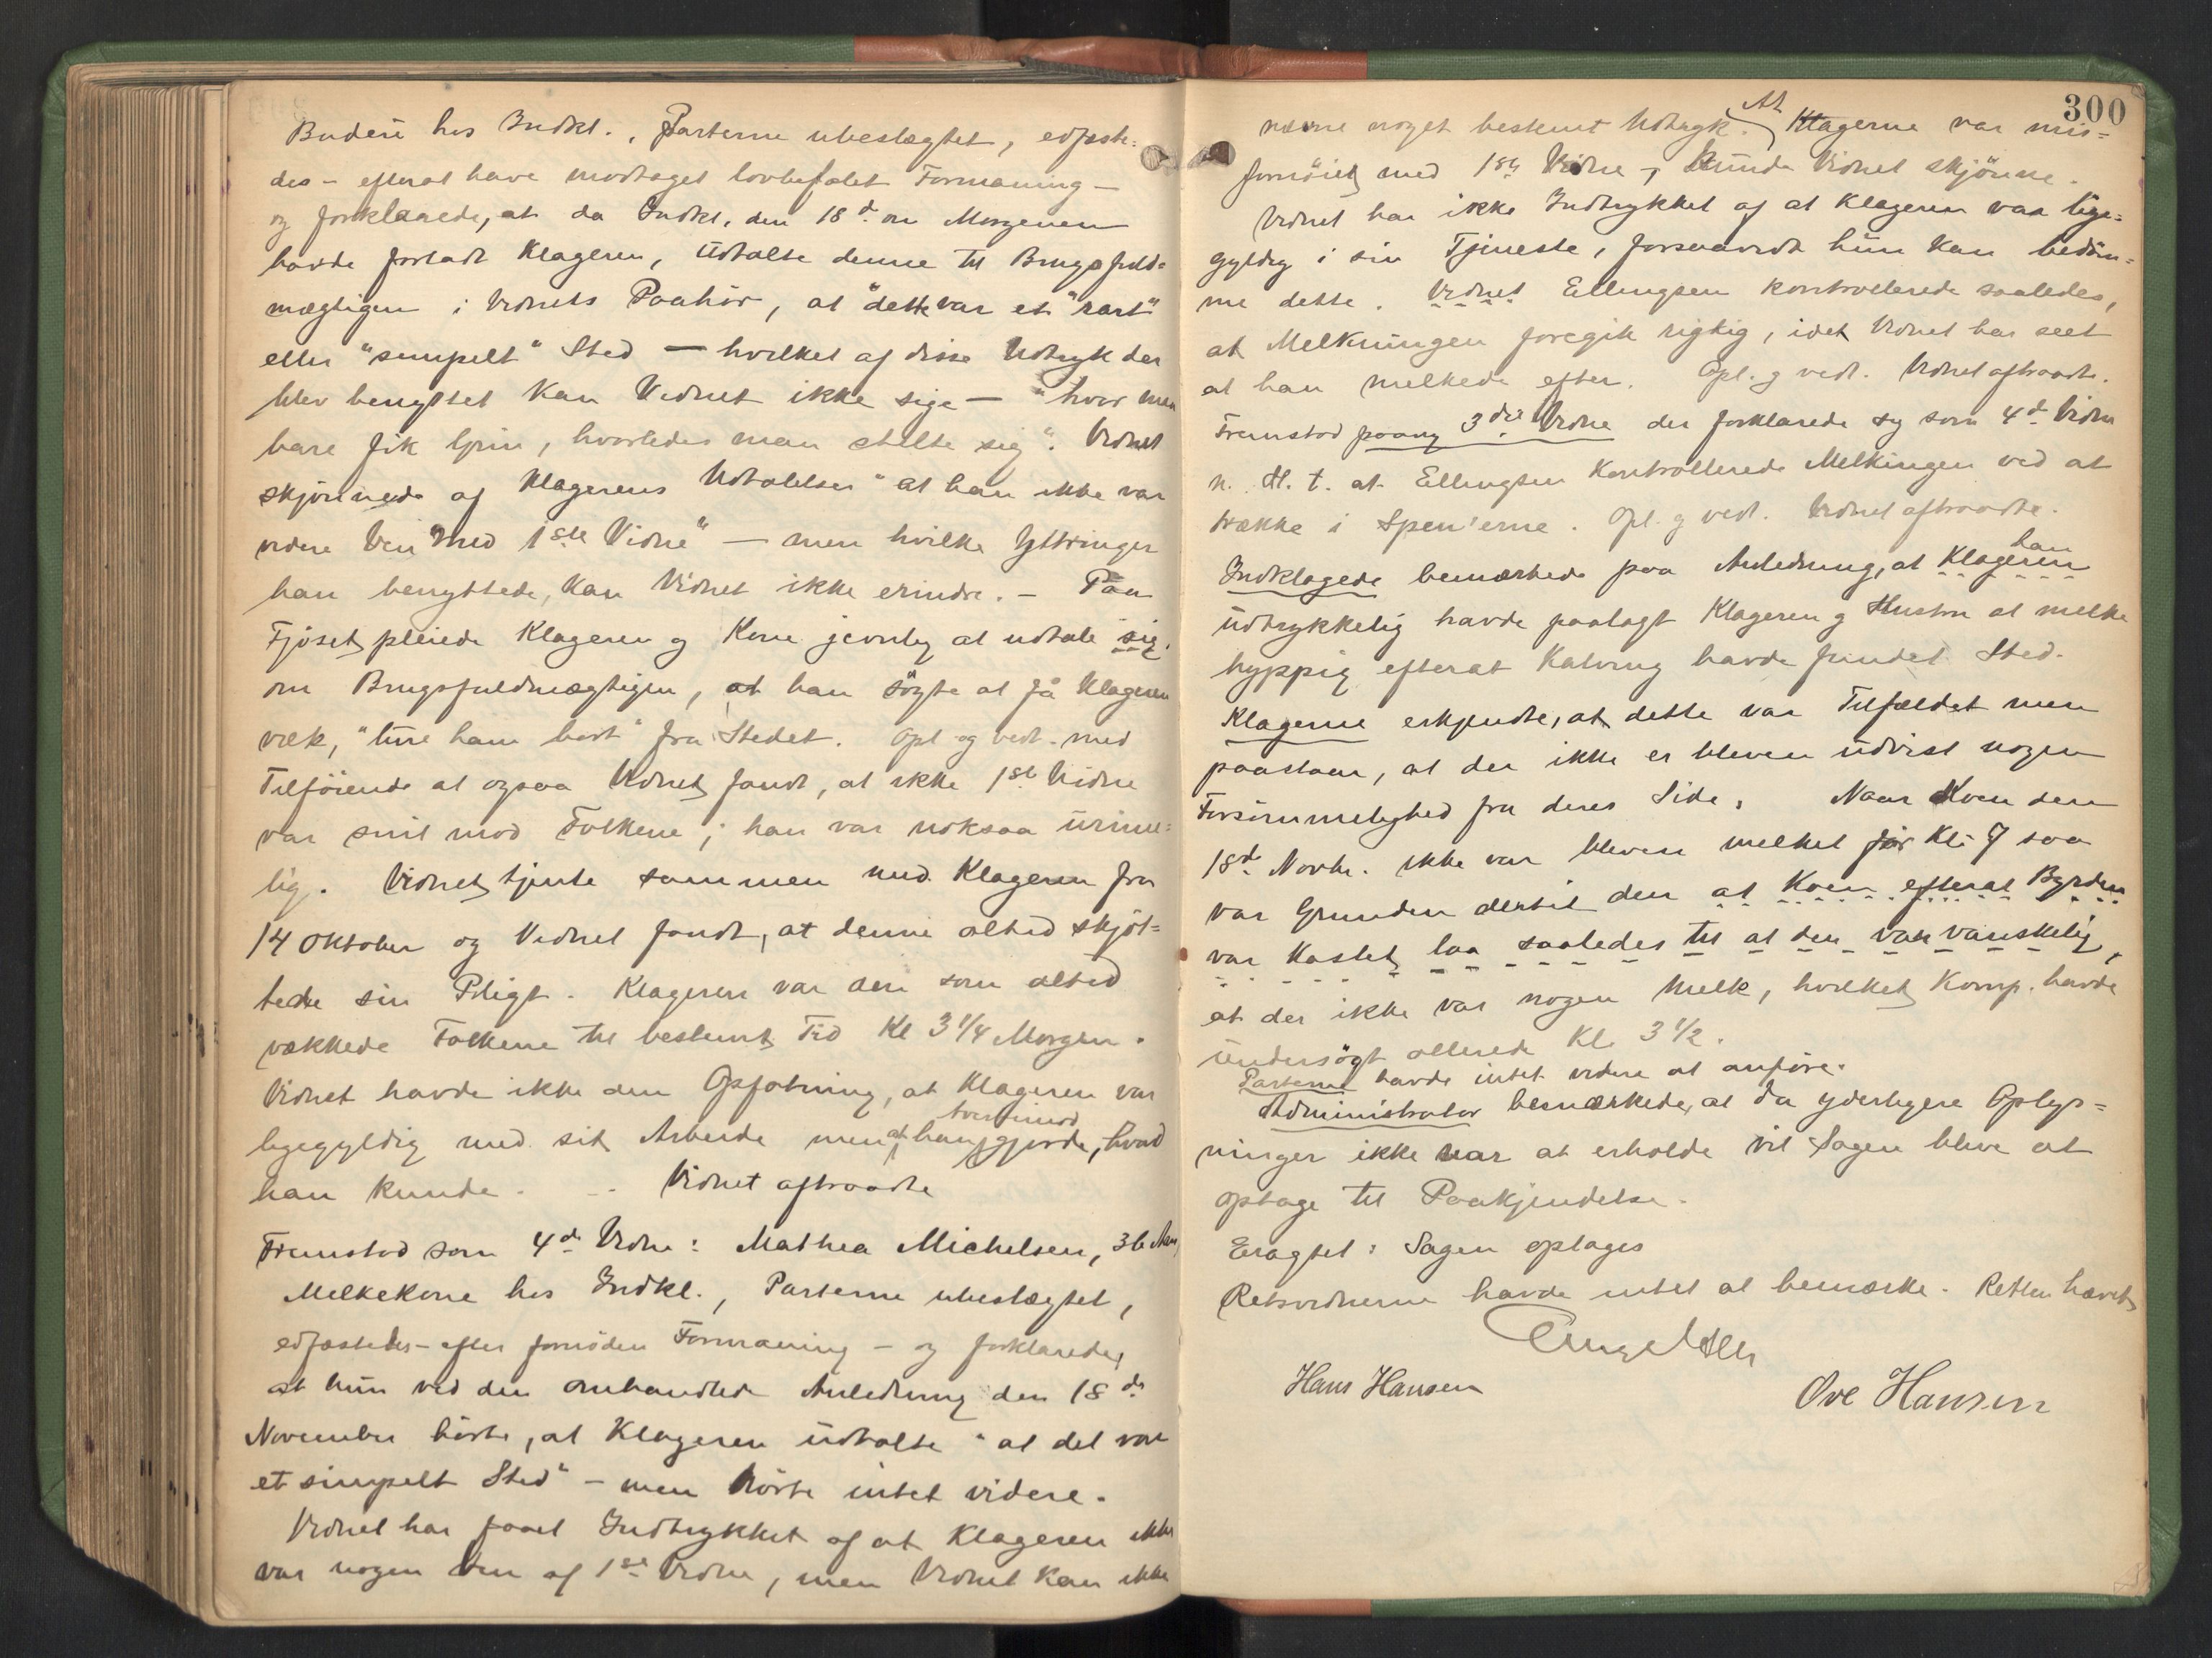 Budeie hos Indkl., Parterne ubeslægtet, edfæste=
des - efterat have modtaget lovbefalet Formaning -
og forklarede, at da Indkl. den 18d. om Morgenen
havde forladt Klageren, udtalte denne til Brugsfuld=
mægtigen i Vidnets Paahør, at "dette var et "rart"
eller "simpelt" Sted — hvilket af disse Udtryk der
blev benyttet kan Vidnet ikke sige — "hvor man
bare fik Grin, hvorledes man stelte sig". Vidnet
skjønnede af Klagerens Udtalelser "at han ikke var
videre Ven med 1ste Vidne" — men hvilke Yttringer
han benyttede, kan Vidnet ikke erindre. - Paa
Fjøset pleiede Klageren og Kone jevnlig at udtale sig
om Brugsfuldmægtigen, at han søgte at få Klageren
væk, "lure ham bort" fra Stedet. Opl. og vedt. med
Tilføiende at ogsaa Vidnet fandt, at ikke 1ste Vidne
var snil mod Folkene; han var noksaa urime=
lig. Vidnet tjente sammen med Klageren fra
14 Oktober og Vidnet fandt, at denne altid skjøt=
tede sin Pligt. Klageren var den som altid
vækkede Folkene til bestemt Tid Kl 3 1/4 Morgen.
Vidnet havde ikke den Opfatning, at Klageren var
ligegyldig med sit Arbeide men at han tvertimod gjorde, hvad
han kunde. - Vidnet aftraadte
Fremstod som 4de Vidne: Mathea Michelsen, 36 Aar,
Melkekone hos Indkl., Parterne ubeslægtet,
edfæstedes - efter fornøden Formaning - og forklarede,
at hun ved den omhandlede Anledning den 18de
November hørte, at Klageren udtalte "at det var
et simpelt Sted" - men hørte intet videre.
Vidnet har faaet Indtrykket af at Klageren ikke
var nogen Ven af 1ste Vidne, men Vidnet kan ikke
300
nævne noget bestemt Udtryk. At Klagerne var mis=
fornøiet med 1ste Vidne, kunde Vidnet skjønne.
Vidnet har ikke Indtrykket af at Klageren var lige=
gyldig i sin Tjeneste, forsaavidt hun kan bedøm=
me dette. Vidnet Ellingsen kontrollerede saaledes,
at Melkningen foregik rigtig, idet Vidnet har seet
at han melkede efter. Opl. og vedt. Vidnet aftraadte.
Fremstod paany 3die Vidne der forklarede sig som 4de Vidne
m. H. t. at Ellingsen kontrollerede Melkingen ved at
trække i Spen'erne. Opl. og vedt. Vidnet aftraadte.
Indklagede bemærkede paa Anledning, at Klageren han
udtrykkelig havde paalagt Klageren og Hustru at melke
hyppig efterat Kalving havde fundet Sted.
Klagerne erkjendte, at dette var Tilfældet men
paastaar, at der ikke er bleven udvist nogen
Forsømmelighed fra deres Side. Naar Koen den
18de Novbr. ikke var bleven melket før Kl. 7 saa
var Grunden dertil den at Koen efterat Byrden
var kastet laa saaledes til at den var vanskelig,
at der ikke var nogen Melk, hvilket Komp. havde
undersøgt allerede Kl. 3 1/2.
Parterne havde intet videre at anføre.
Administrator bemærkede, at da yderligere Oplys=
ninger ikke var at erholde vil Sagen blive at
optage til Paakjendelse.
Eragtet: Sagen optages
Retsvidnerne havde intet at bemærke. Retten hævet
Hans Hansen
Ove Hansen